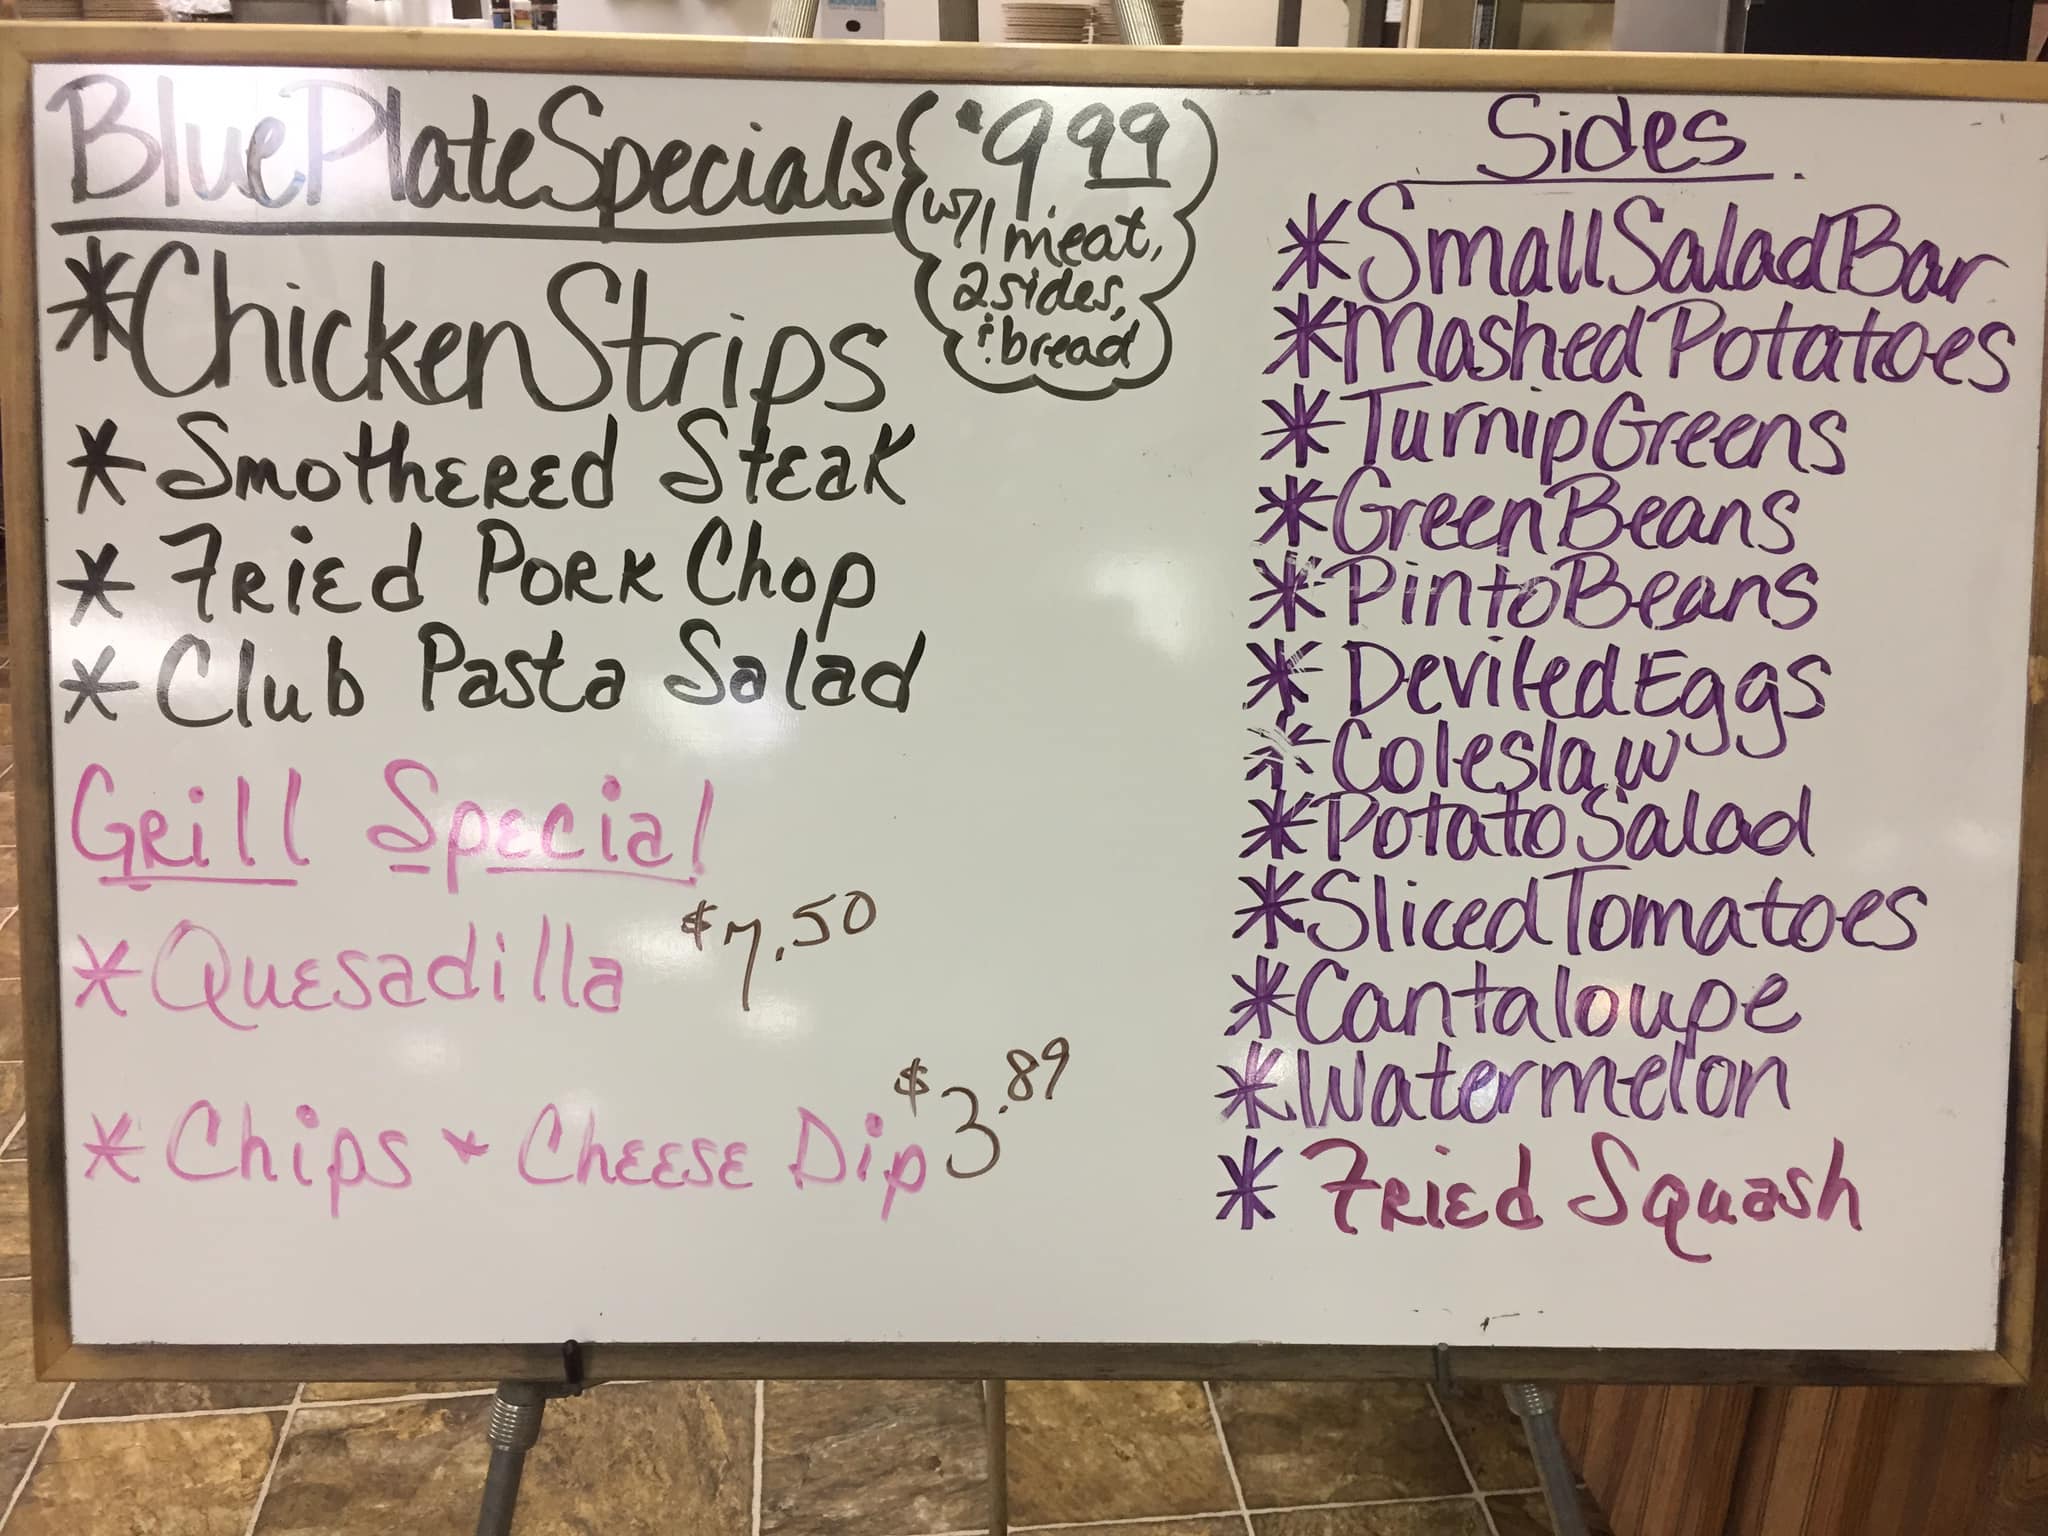 Blue Plate Specials
$9.99
w/1 meat,
2 sides,
& bread
*Chicken Strips
* Smothered Steak
* Fried Pork Chop
* Club Pasta Salad
Grill Special
* Quesadilla $7.50
* Chips & Cheese Dip $3.89
Sides
*Small Salad Bar
*Mashed Potatoes
*Turnip Greens
*Green Beans
*Pinto Beans
*Deviled Eggs
*Coleslaw
*Potato Salad
*Sliced Tomatoes
*Cantaloupe
*Watermelon
* Fried Squash